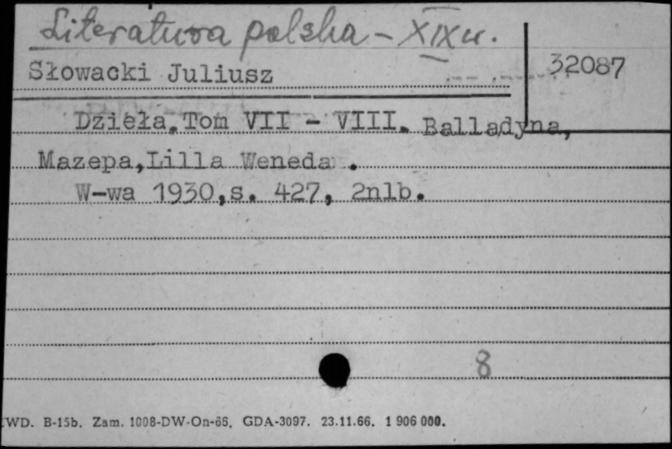 Literatura polska - XIX w.
Słowacki Juliusz
32087
Dzieła.Tom VII - VIII. Balladyna,
Mazepa,Lilla Weneda .
W-wa 1930,s. 427, 2nlb.
8
WD. B-15b. Zam. 1008-DW-On-66. GDA-3097. 23.11.66. 1 906 000.